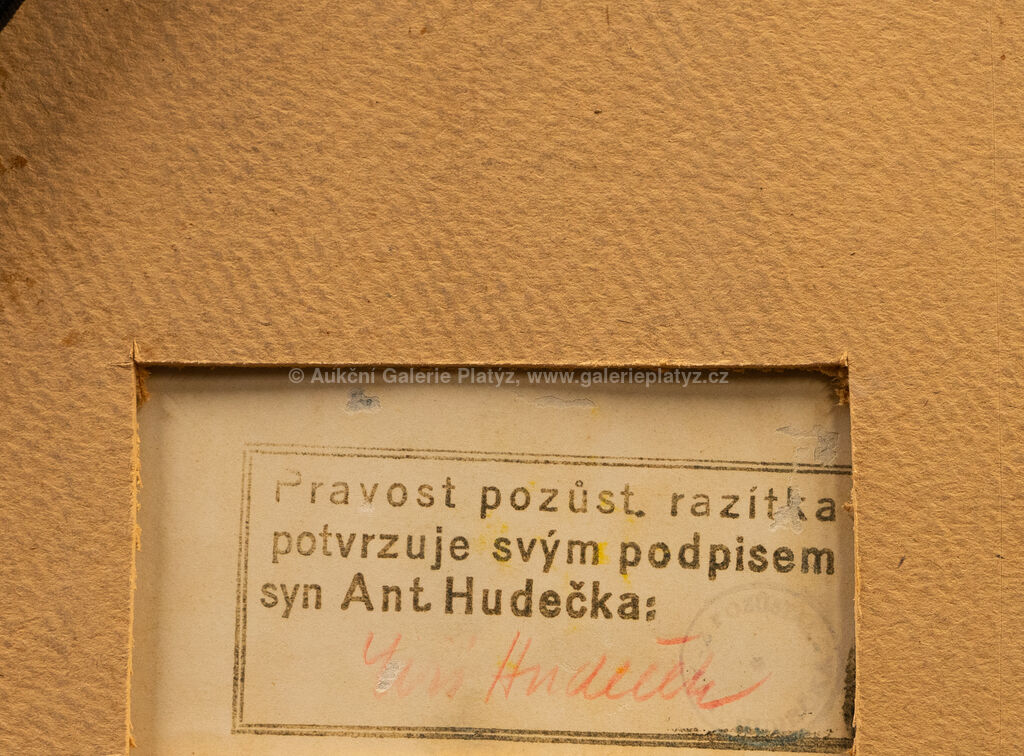 © Aukční Galerie Platýz, www.galerieplatyz.cz
Pravost pozůst. razítka
potvrzuje svým podpisem
syn Ant. Hudečka:
Jiří Hudeček